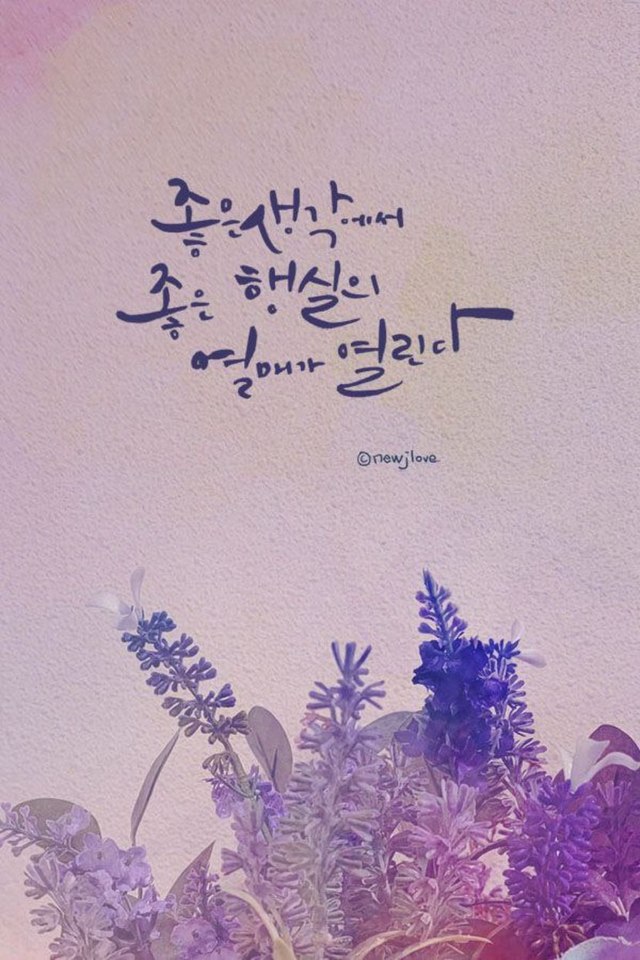 좋은생각에서
좋은 행실의
열매가 열린다
©newjlove